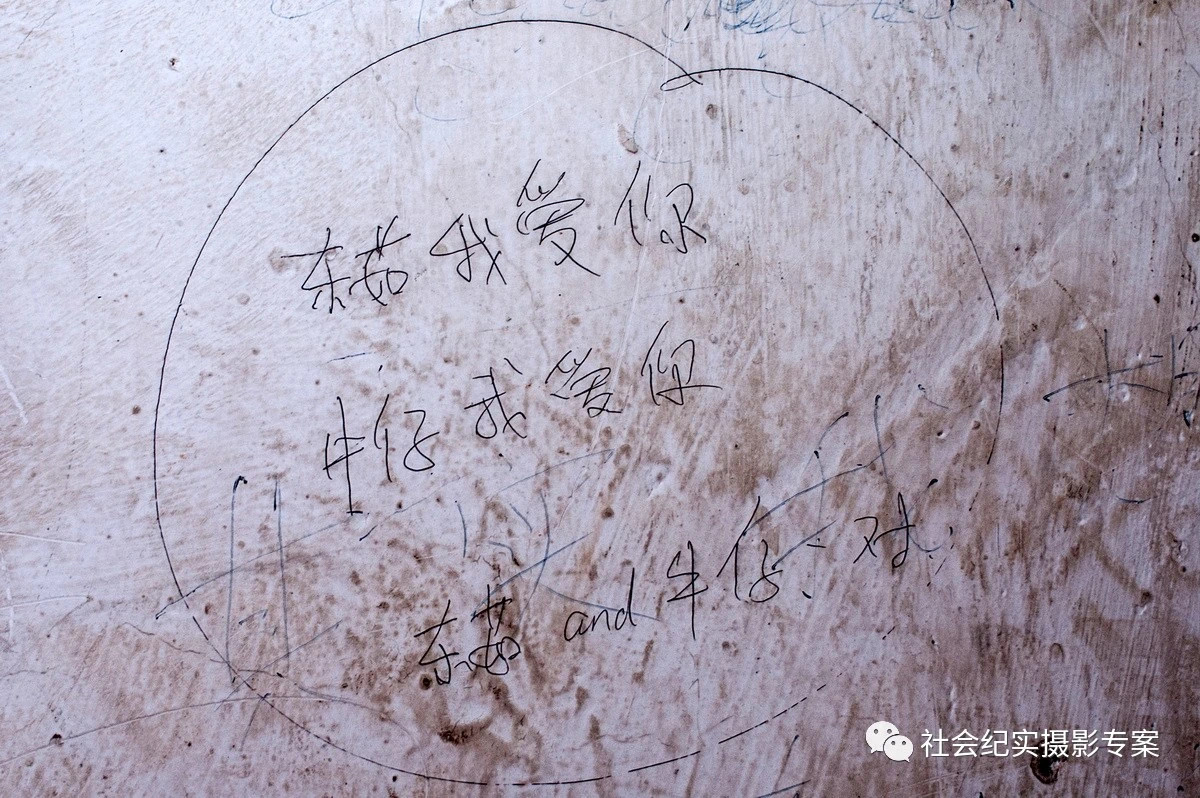 东茹我爱你
牛仔我爱你
东茹 and 牛仔一对
社会纪实摄影专案